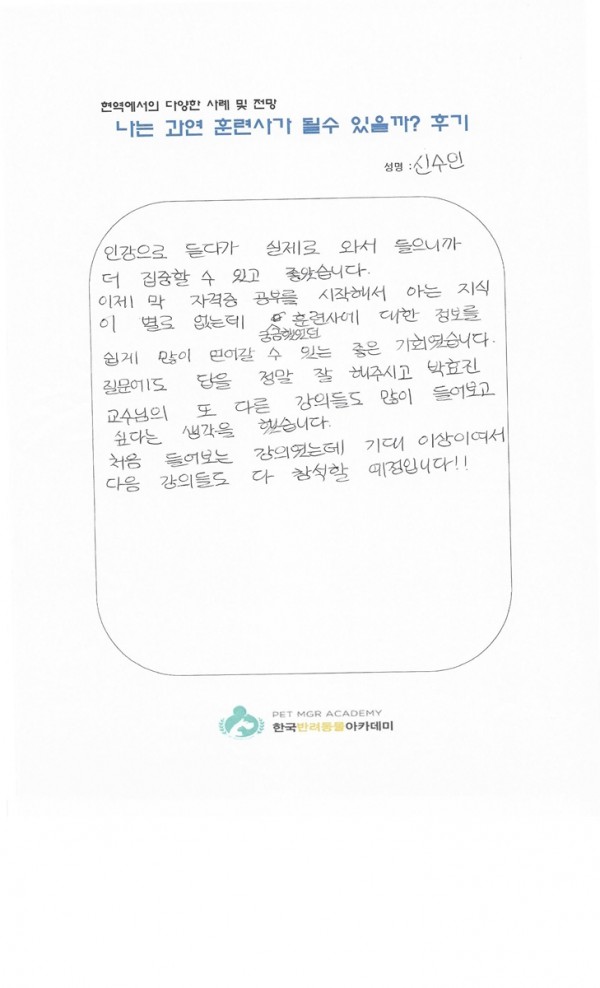 현역에서의 다양한 사례 및 전망
나는 과연 훈련사가 될수 있을까? 후기
성명 : 신수인
인강으로 듣다가 실제로 와서 들으니까
더 집중할 수 있고 좋았습니다.
이제 막 자격증 공부를 시작해서 아는 지식
이 별로 없는데 궁금했었던 훈련사에 대한 정보를
쉽게 많이 얻어갈 수 있는 좋은 기회였습니다.
질문에도 답을 정말 잘 해주시고 박효진
교수님의 또 다른 강의들도 많이 들어보고
싶다는 생각을 했습니다.
처음 들어보는 강의였는데 기대 이상이여서
다음 강의들도 다 참석할 예정입니다!!
PET MGR ACADEMY
한국반려동물아카데미